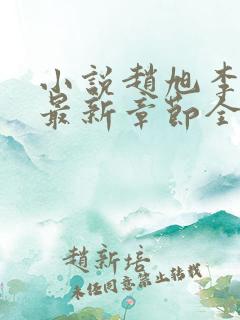 小説趙旭李
最新章節全
趙新培
未经同意禁止转载